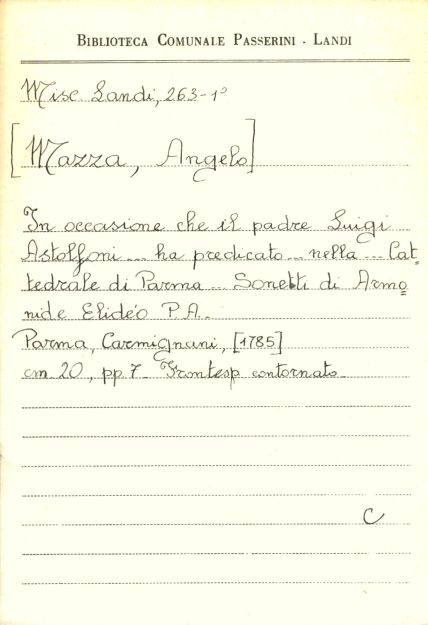 BIBLIOTECA COMUNALE PASSERINI - LANDI
Misc. Landi, 263-1°
[Mazza, Angelo]
In occasione che il padre Luigi
Astolfoni ... ha predicato ... nella ... Cat=
tedrale di Parma ... Sonetti di Armo=
nide Elidéo P.A.
Parma, Carmignani, [1785]
cm 20, pp. 7 Frontesp. contornato
C